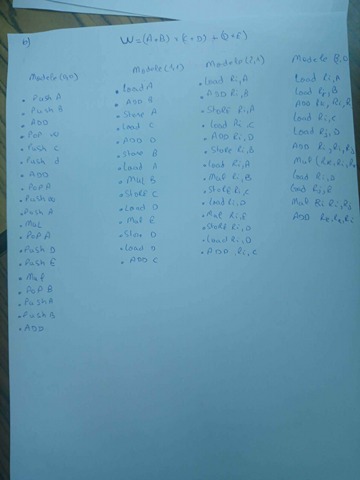 b) W=(A+B) x (C+D) + (D x E)
Modele(0,0)
• Push A
• Push B
• ADD
• POP W
• Push C
• Push d
• ADD
• POP A
• Push W
• Push A
• Mul
• POP A
• Push D
• Push E
• Mul
• POP B
• Push A
• Push B
• ADD
Modele(1,1)
• Load A
• ADD B
• Store A
• Load C
• ADD D
• Store B
• Load A
• Mul B
• Store C
• Load D
• Mul E
• Store D
• Load D
• ADD C
Modele(2,1)
• Load Ri,A
• ADD Ri,B
• Store Ri,A
• Load Ri,C
• ADD Ri,D
• Store Ri,B
• Load Ri,A
• Mul Ri,B
• Store Ri,C
• Load Ri,D
• Mul Ri,E
• Store Ri,D
• Load Ri,D
• ADD Ri,C
Modele
Load Ri,A
Load Rj,B
Load Ri,C
Load Rj,D
ADD Ri,Ri,Rj
Load Ri,D
Load Rj,E
Mul Ri Ri,Rj